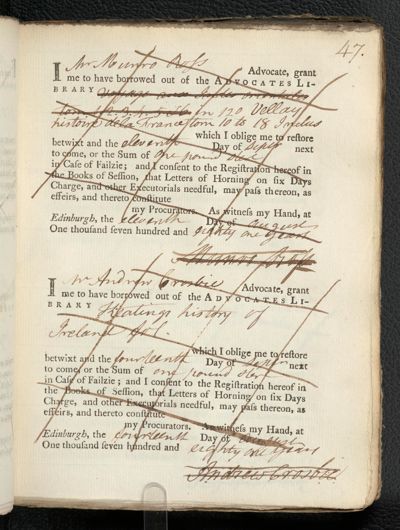 47.
I Mr Munro Ross Advocate, grant
me to have borrowed out of the ADVOCATES LI-
BRARY
in 12o Vellay
histoire de la France tom 10 to 18 Inclus
which I oblige me to restore
betwixt and the eleventh Day of Septr next
to come, or the Sum of One pound ster
in Case of Failzie; and I consent to the Registration hereof in
the Books of Session, that Letters of Horning on six Days
Charge, and other Executorials needful, may pass thereon, as
effeirs, and thereto constitute
my Procurators. As witness my Hand, at
Edinburgh, the eleventh Day of August
One thousand seven hundred and eighty one years
Munro Ross
I Mr Andrew Crosbie Advocate, grant
me to have borrowed out of the ADVOCATES LI-
BRARY Keatings history of
Ireland fol.
which I oblige me to restore
betwixt and the fourteenth Day of Septr next
to come, or the Sum of one pound ster
in Case of Failzie; and I consent to the Registration hereof in
the Books of Session, that Letters of Horning on six Days
Charge, and other Executorials needful, may pass thereon, as
effeirs, and thereto constitute
my Procurators. As witness my Hand, at
Edinburgh, the fourteenth Day of August
One thousand seven hundred and eighty one years
Andrew Crosbie